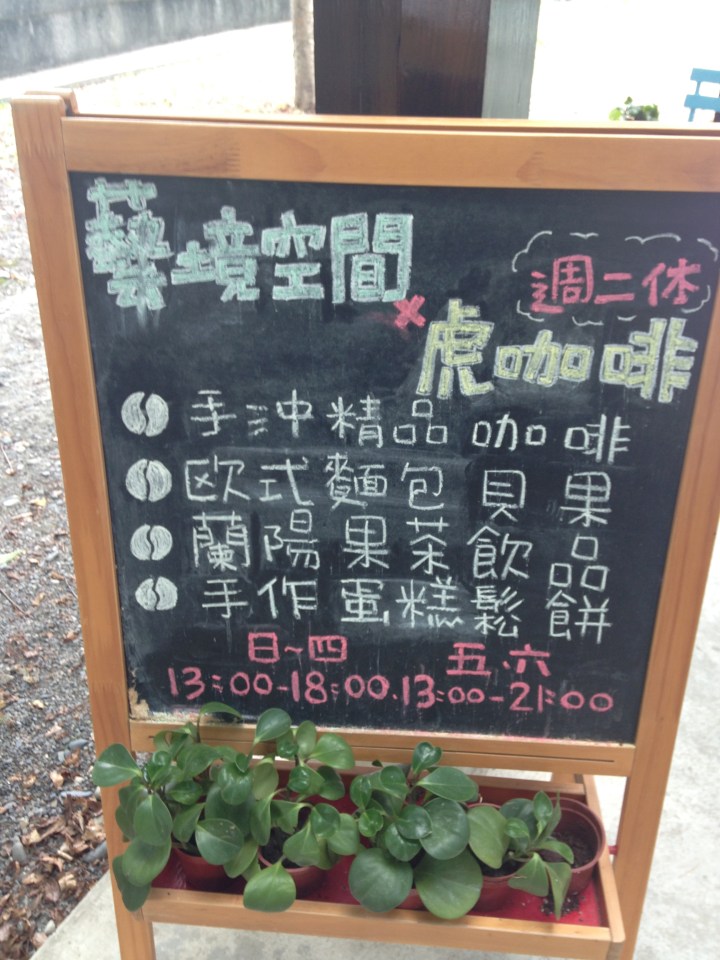 藝境空間
週二休
×虎咖啡
手沖精品咖啡
欧式麵包貝果
蘭陽果茶飲品
手作蛋糕鬆餅
日~四 五.六
13:00-18:00.13:00-21:00